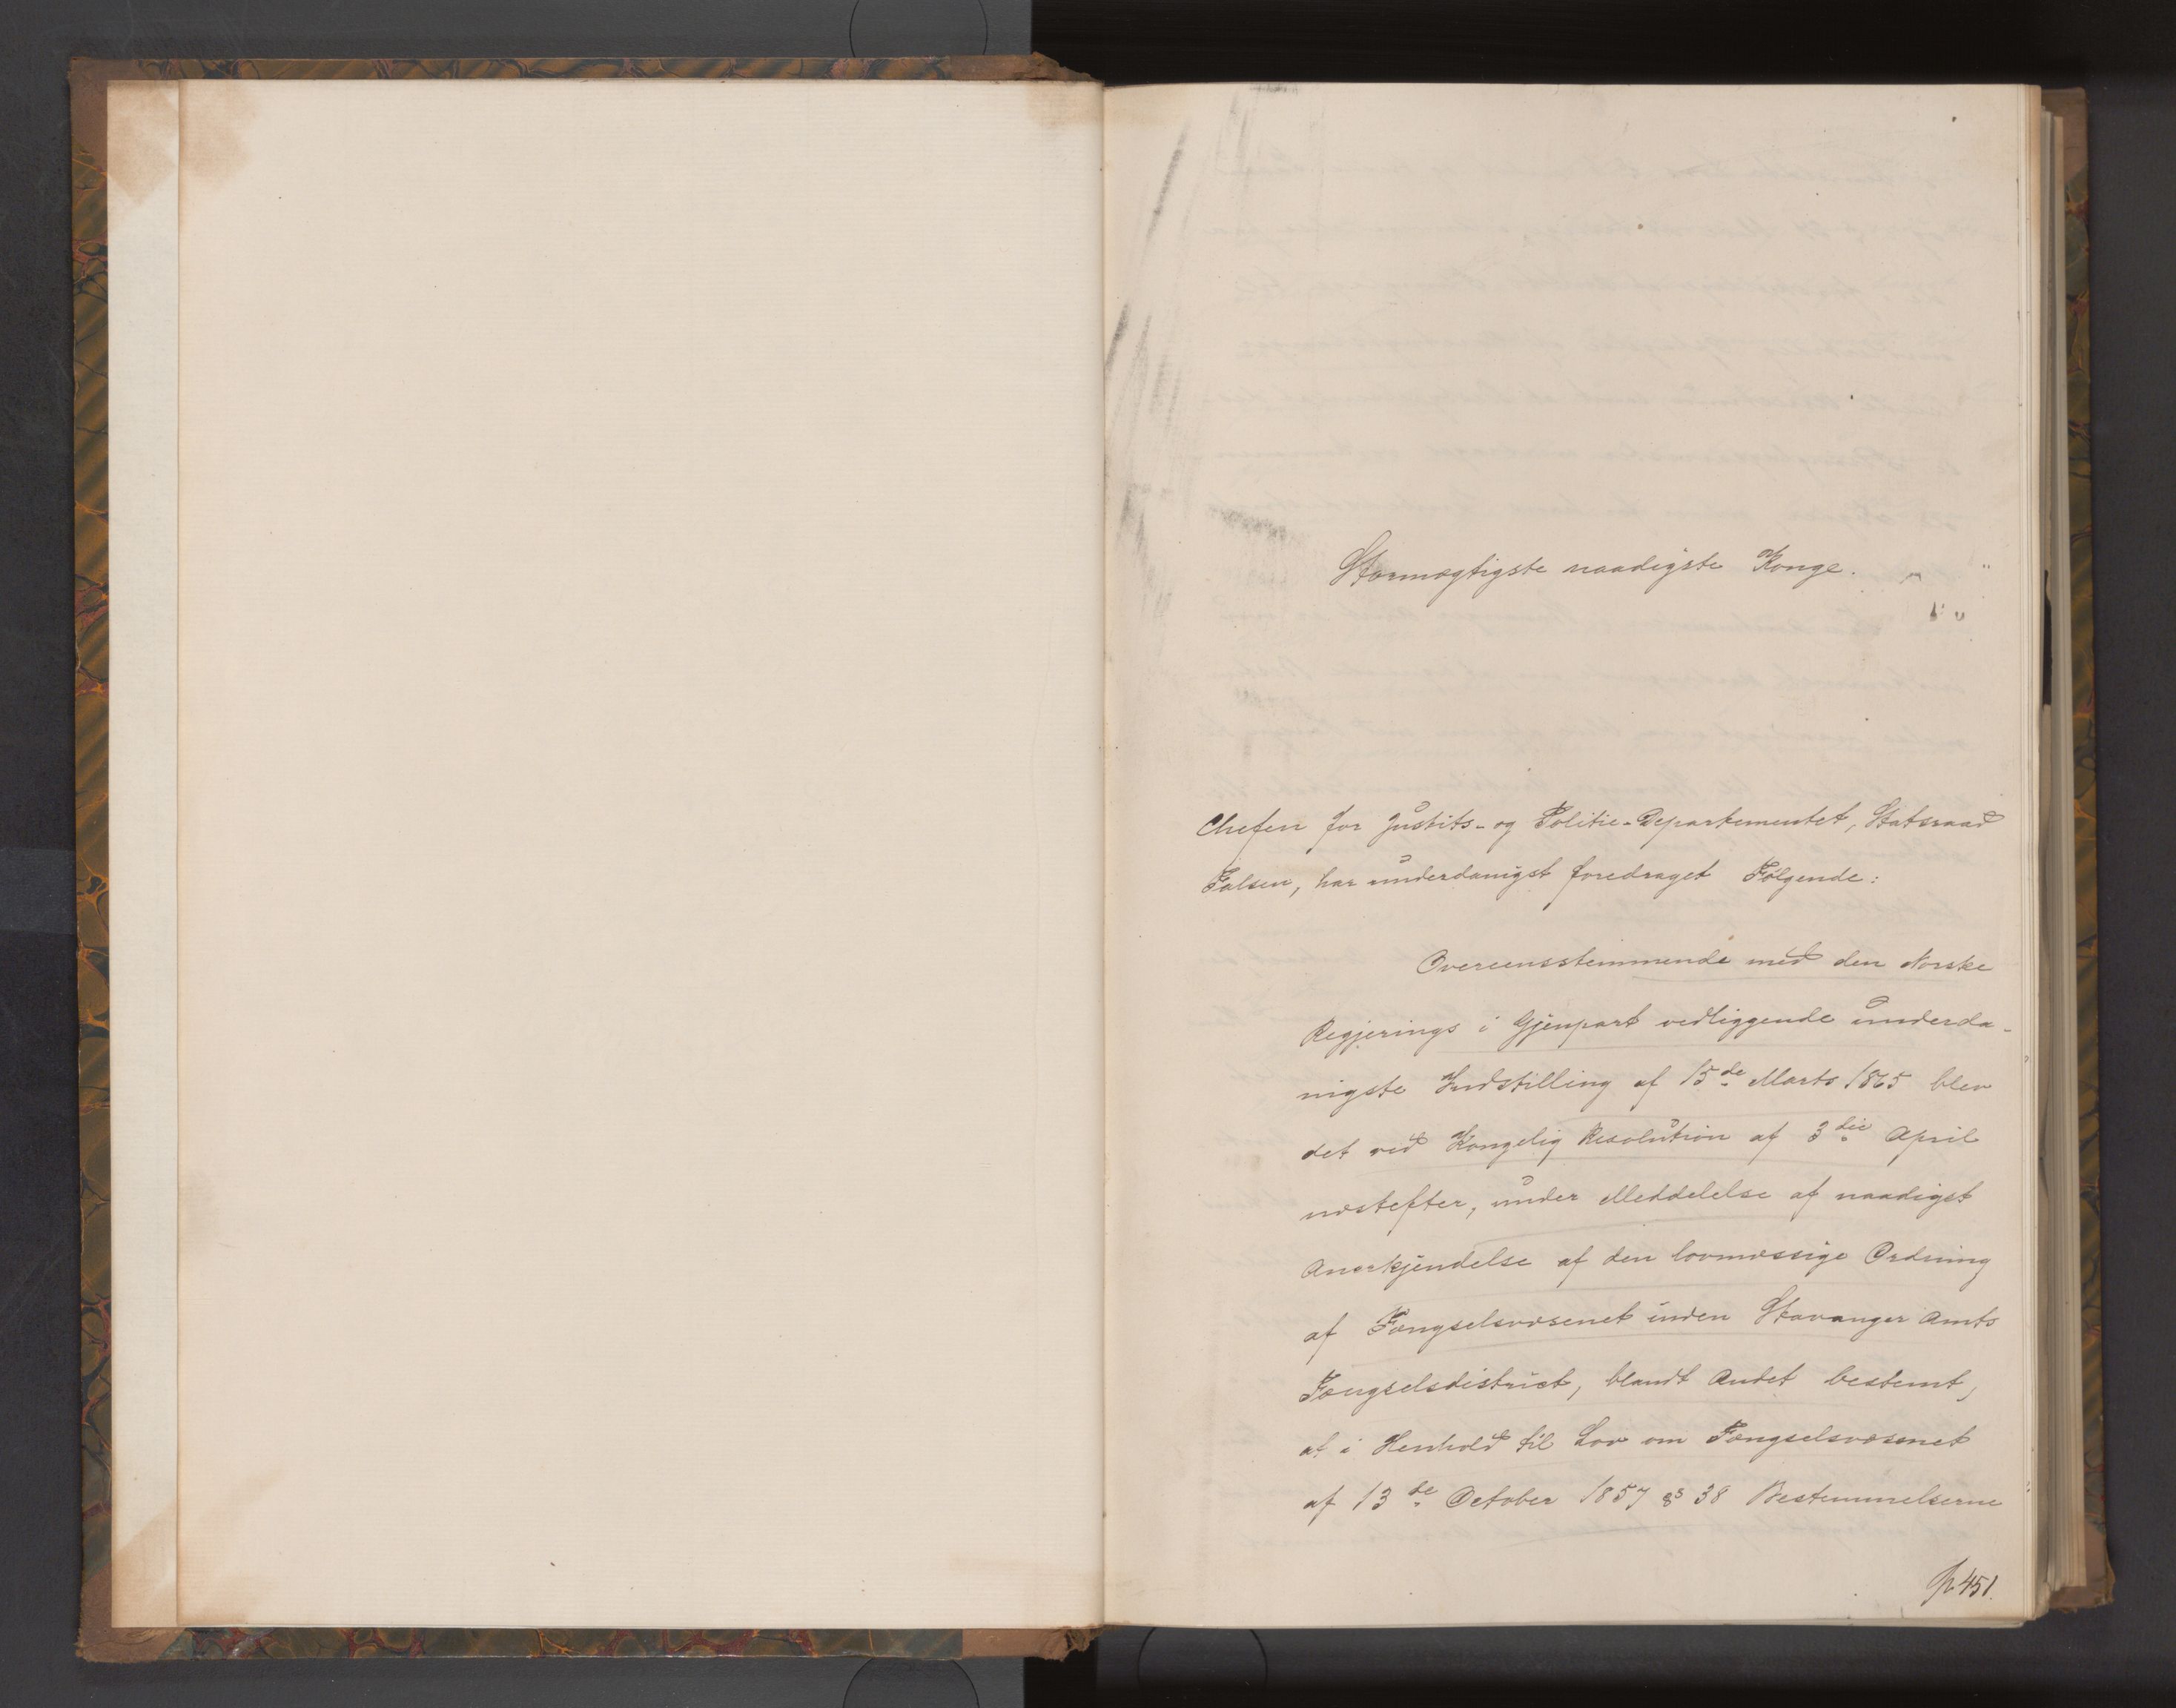 Stormægtigste naadigste Konge.
Chefen for Justits- og Politie-Departementet, Statsraad
Falsen, har underdanigst foredraget Følgende:
Overeensstemmende med den Norske
Regjerings i Gjenpart vedliggende underda-
nigste Indstilling af 15de Marts 1865 blev
det ved Kongelig Resolution af 3die April
næstefter, under Meddelelse af naadigst
Anerkjendelse af den lovmæssige Ordning
af Fængselsvæsenet inden Stavanger Amts
Fængselsdistrict, blandt Andet bestemt,
at i Henhold til Lov om Fængselsvæsenet
af 13de October 1857 § 38 Bestemmelserne